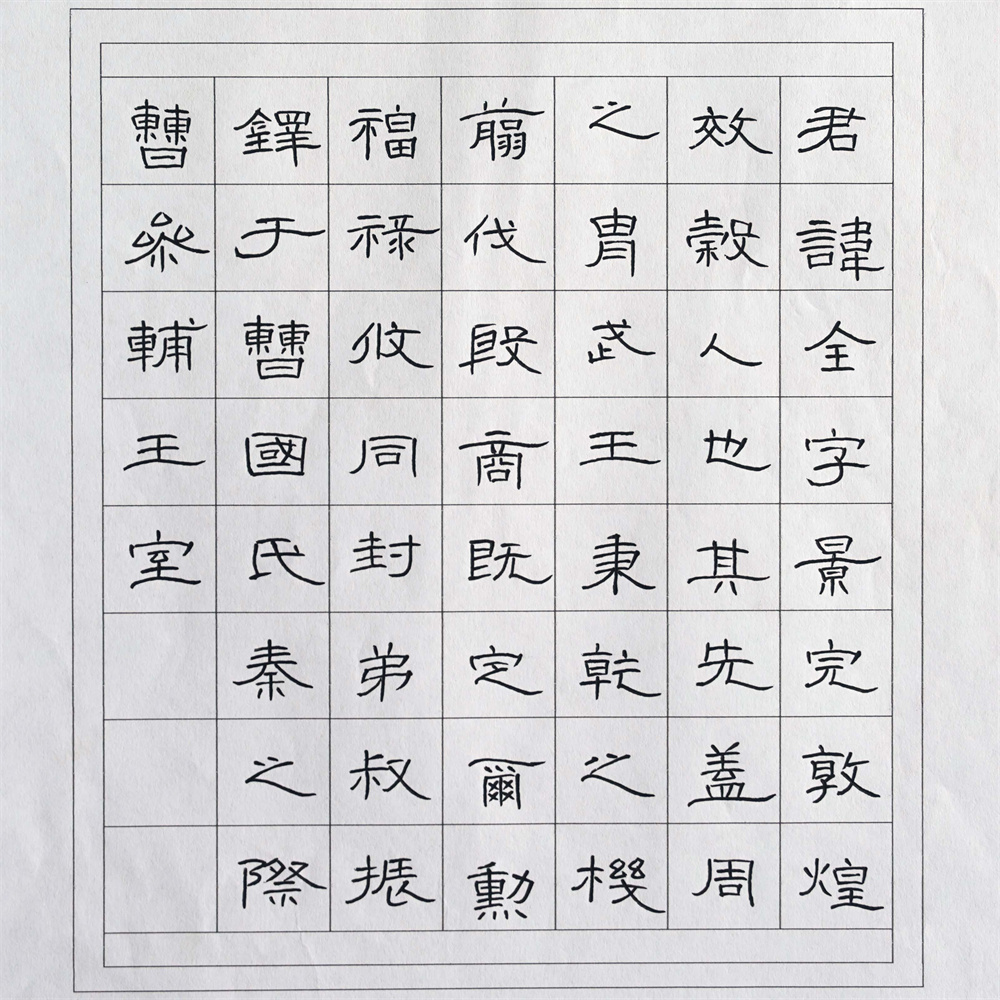 君諱全字景完敦煌
效穀人也其先盖周
之胄武王秉乾之機
翦伐殷商既定爾勳
福禄攸同封弟叔振
鐸于曹國氏秦之際
曹參輔王室